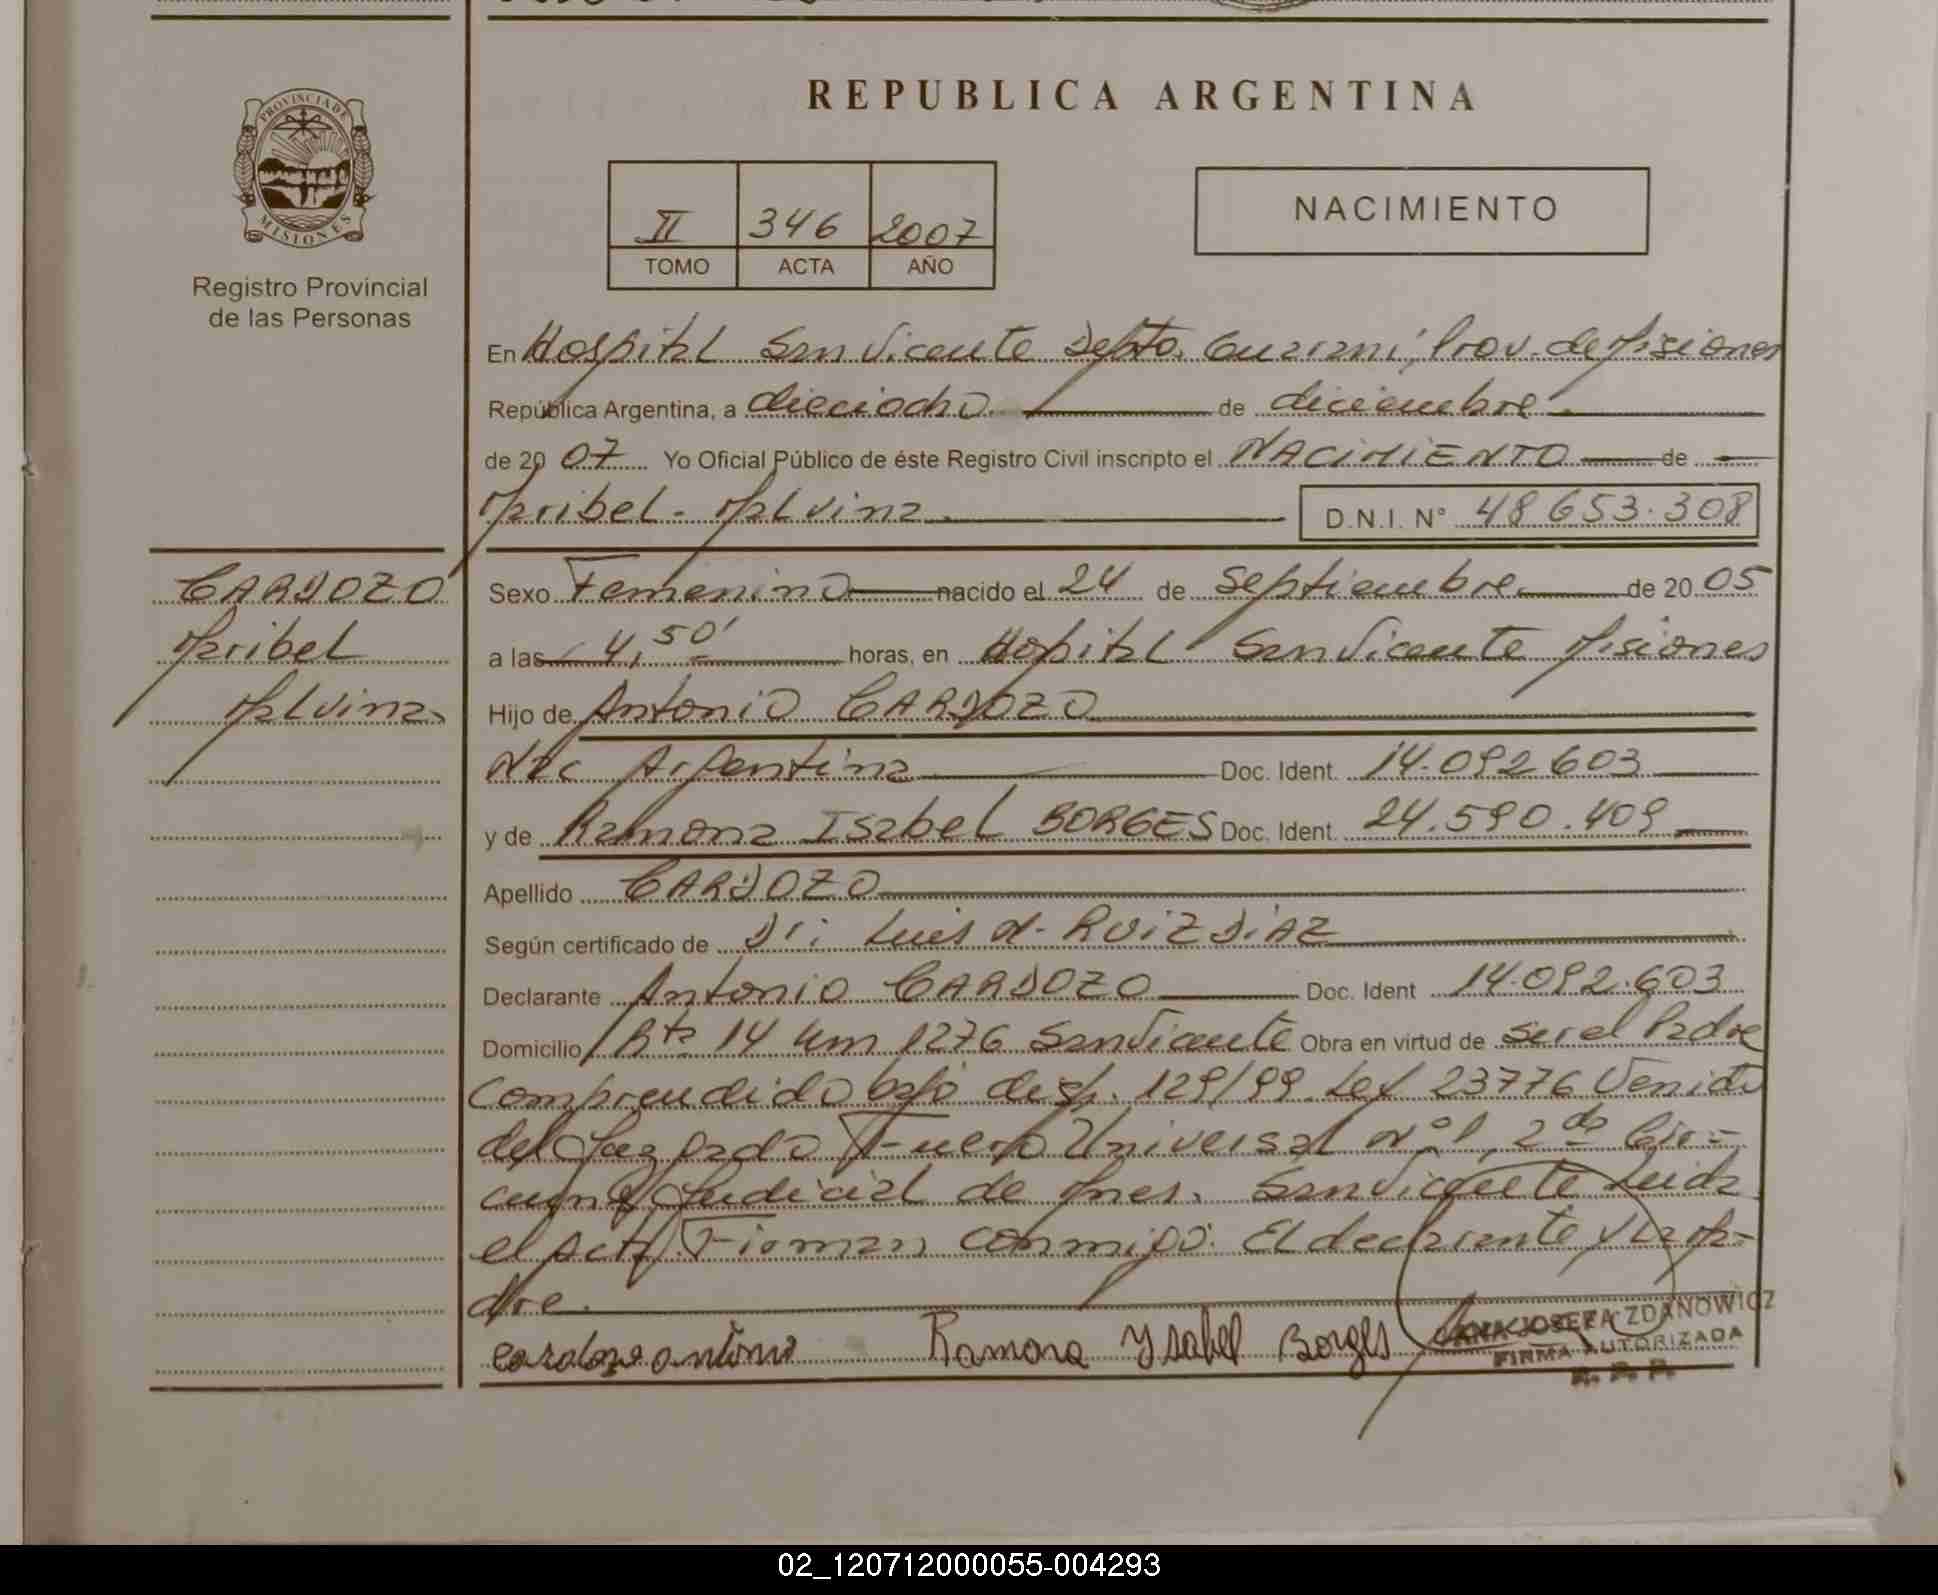 REPUBLICA ARGENTINA
PROVINCIA DE
MISIONES
Registro Provincial
de las Personas
II 346 2007
TOMO ACTA AÑO
NACIMIENTO
En Hospital San Vicente Depto. Guarani, Prov. de Misiones
República Argentina, a dieciocho de diciembre
de 20 07 Yo Oficial Público de éste Registro Civil inscripto el NACIMIENTO de
Maribel - Malvina D.N.I. N° 48653.308
CARDOZO
Maribel
Malvina
Sexo Femenino nacido el 24 de Septiembre de 20 05
a las 4,50' horas, en Hospital San Vicente Misiones
Hijo de Antonio CARDOZO
Nac Argentina Doc. Ident. 14.092.603
y de Ramona Isabel BORGES Doc. Ident. 24.590.409
Apellido CARDOZO
Según certificado de Dr: Luis N. RUIZ DIAZ
Declarante Antonio CARDOZO Doc. Ident 14.092.603
Domicilio Rta 14 Km 1276 San Vicente Obra en virtud de Ser el Padre
Comprendido bajo disp. 129/99 Ley 23776 Venido
del Juzgado Fuero Universal N°1, 2da Circ-
cunsc. Judicial de Mnes. San Vicente Leida
el Acta Firman conmigo: El declarante y La Ma-
dre.
cardozo antonio Ramona Ysabel Borges
ANA JOSEFA ZDANOWICZ
FIRMA AUTORIZADA
R. P. P.
02_120712000055-004293